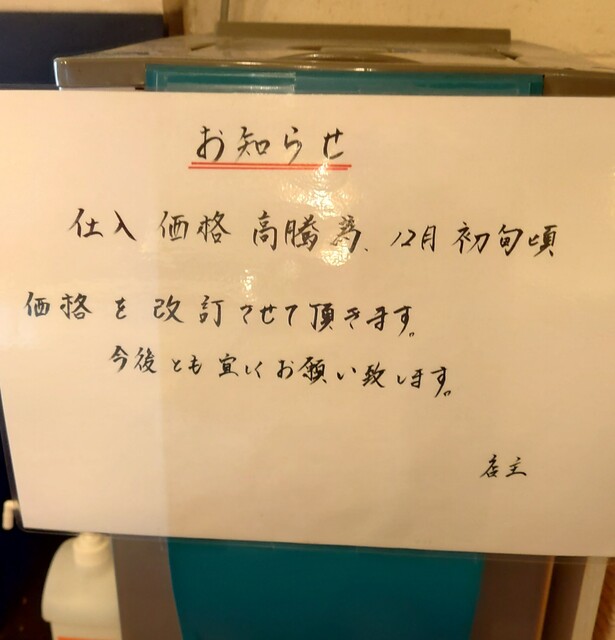 お知らせ
仕入価格高騰為、12月初旬頃
価格を改訂させて頂きます。
今後とも宜しくお願い致します。
店主